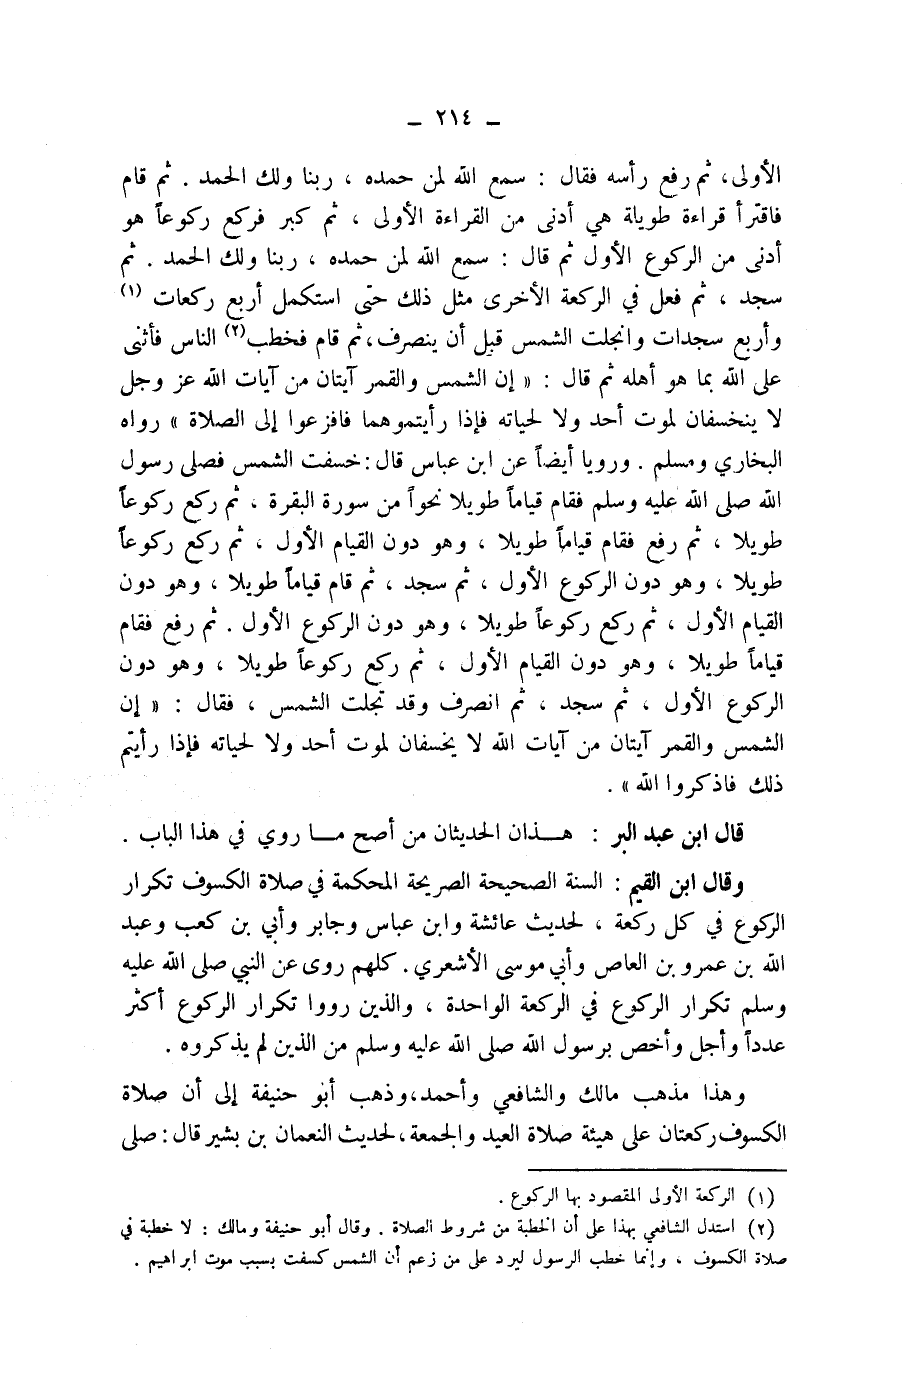 ـ ٢١٤ ـ
الأولى، ثم رفع رأسه فقال : سمع الله لمن حمده ، ربنا ولك الحمد . ثم قام
فاقترأ قراءة طويلة هي أدنى من القراءة الأولى ، ثم كبر فركع ركوعاً هو
أدنى من الركوع الأول ثم قال : سمع الله لمن حمده ، ربنا ولك الحمد . ثم
سجد ، ثم فعل في الركعة الأخرى مثل ذلك حتى استكمل أربع ركعات (١)
وأربع سجدات وانجلت الشمس قبل أن ينصرف، ثم قام فخطب(٢) الناس فأثنى
على الله بما هو أهله ثم قال : « إن الشمس والقمر آيتان من آيات الله عز وجل
لا ينخسفان لموت أحد ولا لحياته فإذا رأيتموهما فافزعوا إلى الصلاة » رواه
البخاري ومسلم . ورويا أيضاً عن ابن عباس قال : خسفت الشمس فصلى رسول
الله صلى الله عليه وسلم فقام قياماً طويلا نحواً من سورة البقرة ، ثم ركع ركوعاً
طويلا ، ثم رفع فقام قياماً طويلا ، وهو دون القيام الأول ، ثم ركع ركوعاً
طويلا ، وهو دون الركوع الأول ، ثم سجد ، ثم قام قياماً طويلا ، وهو دون
القيام الأول ، ثم ركع ركوعاً طويلا ، وهو دون الركوع الأول . ثم رفع فقام
قياماً طويلا ، وهو دون القيام الأول ، ثم ركع ركوعاً طويلا ، وهو دون
الركوع الأول ، ثم سجد ، ثم انصرف وقد تجلت الشمس ، فقال : « إن
الشمس والقمر آيتان من آيات الله لا يخسفان لموت أحد ولا لحياته فإذا رأيتم
ذلك فاذكروا الله » .
قال ابن عبد البر : هـذان الحديثان من أصح مـا روي في هذا الباب .
وقال ابن القيم : السنة الصحيحة الصريحة المحكمة في صلاة الكسوف تكرار
الركوع في كل ركعة ، لحديث عائشة وابن عباس وجابر وأبي بن كعب وعبد
الله بن عمرو بن العاص وأبي موسى الأشعري . كلهم روى عن النبي صلى الله عليه
وسلم تكرار الركوع في الركعة الواحدة ، والذين رووا تكرار الركوع أكثر
عدداً وأجل وأخص برسول الله صلى الله عليه وسلم من الذين لم يذكروه .
وهذا مذهب مالك والشافعي وأحمد، وذهب أبو حنيفة إلى أن صلاة
الكسوف ركعتان على هيئة صلاة العيد والجمعة، لحديث النعمان بن بشير قال : صلى
(١) الركعة الأولى المقصود بها الركوع .
(٢) استدل الشافعي بهذا على أن الخطبة من شروط الصلاة . وقال أبو حنيفة ومالك : لا خطبة في
صلاة الكسوف ، وإنما خطب الرسول ليرد على من زعم أن الشمس كسفت بسبب موت ابراهيم .